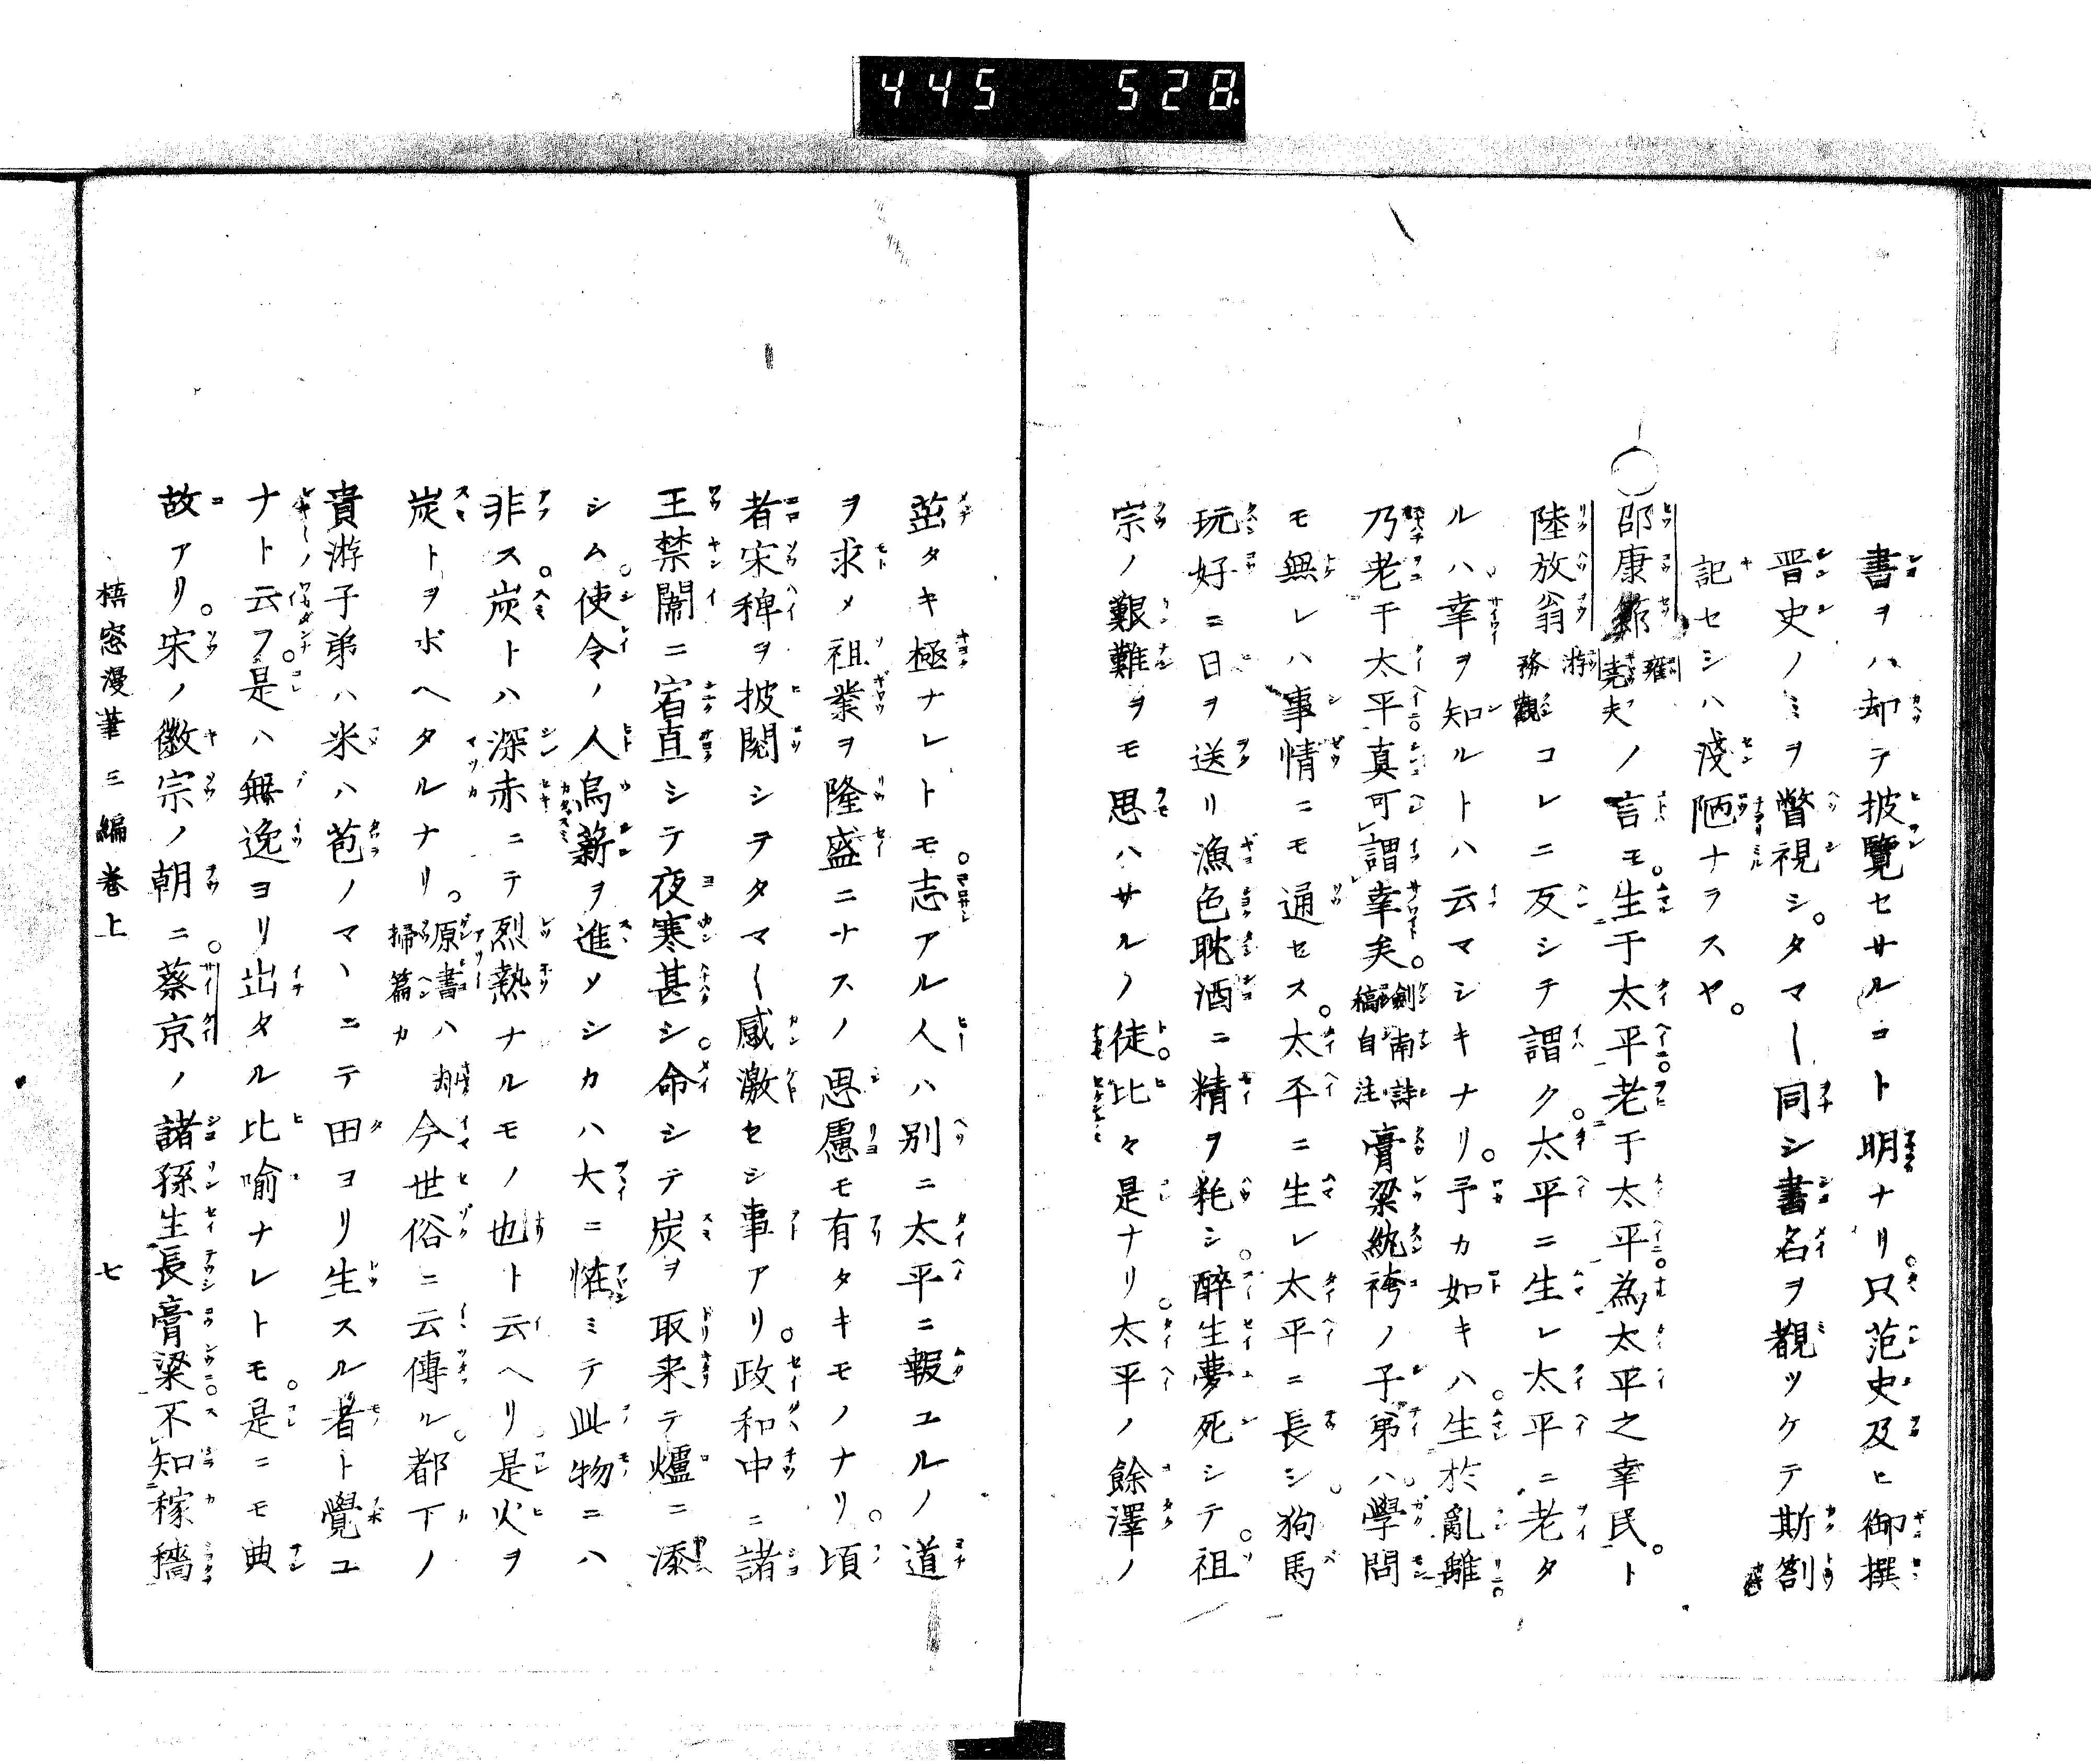 445 528
書ヲハ却テ披覽セサルコト明ナリ只范史及ヒ御撰
晋史ノミヲ瞥視シタマ〳〵同シ書名ヲ觀ツケテ斯劄
記セシハ淺陋ナラスヤ。
○邵康節雍堯夫ノ言モ生于太平老于太平為太平之幸民。ト
陸放翁游務觀コレニ反シテ謂ク太平ニ生レ太平ニ老タ
ルハ幸ヲ知ルトハ云マシキナリ。予カ如キハ生於亂離
乃老于太平真可謂幸矣。劍南詩稿自注膏粱紈袴ノ子弟ハ學問
モ無レハ事情ニモ通セス。太平ニ生レ太平ニ長シ狗馬
玩好ニ日ヲ送リ漁色耽酒ニ精ヲ耗シ醉生夢死シテ祖
宗ノ艱難ヲモ思ハサルノ徒比々是ナリ太平ノ餘澤ノ
茲タキ極ナレトモ志アル人ハ別ニ太平ニ報ユルノ道
ヲ求メ祖業ヲ隆盛ニナスノ思慮モ有タキモノナリ。頃
者宋稗ヲ披閱シヲタマ〳〵感激セシ事アリ。政和中ニ諸
王禁闈ニ宿直シテ夜寒甚シ命シテ炭ヲ取来テ爐ニ添
シム使令ノ人烏薪ヲ進ソシカハ大ニ恠ミテ此物ニハ
非ス炭トハ深赤ニテ烈熱ナルモノ也ト云ヘリ是火ヲ
炭トヲボヘタルナリ。原書ハ掃篇カ今世俗ニ云傳ル都下ノ
貴游子弟ハ米ハ苞ノマヽニテ田ヨリ生スル者ト覺ユ
ナト云フ是ハ無逸ヨリ出タル比喻ナレトモ是ニモ典
故アリ。宋ノ徽宗ノ朝ニ蔡京ノ諸孫生長膏粱不知稼穡
梧窓漫筆 三編卷上 七